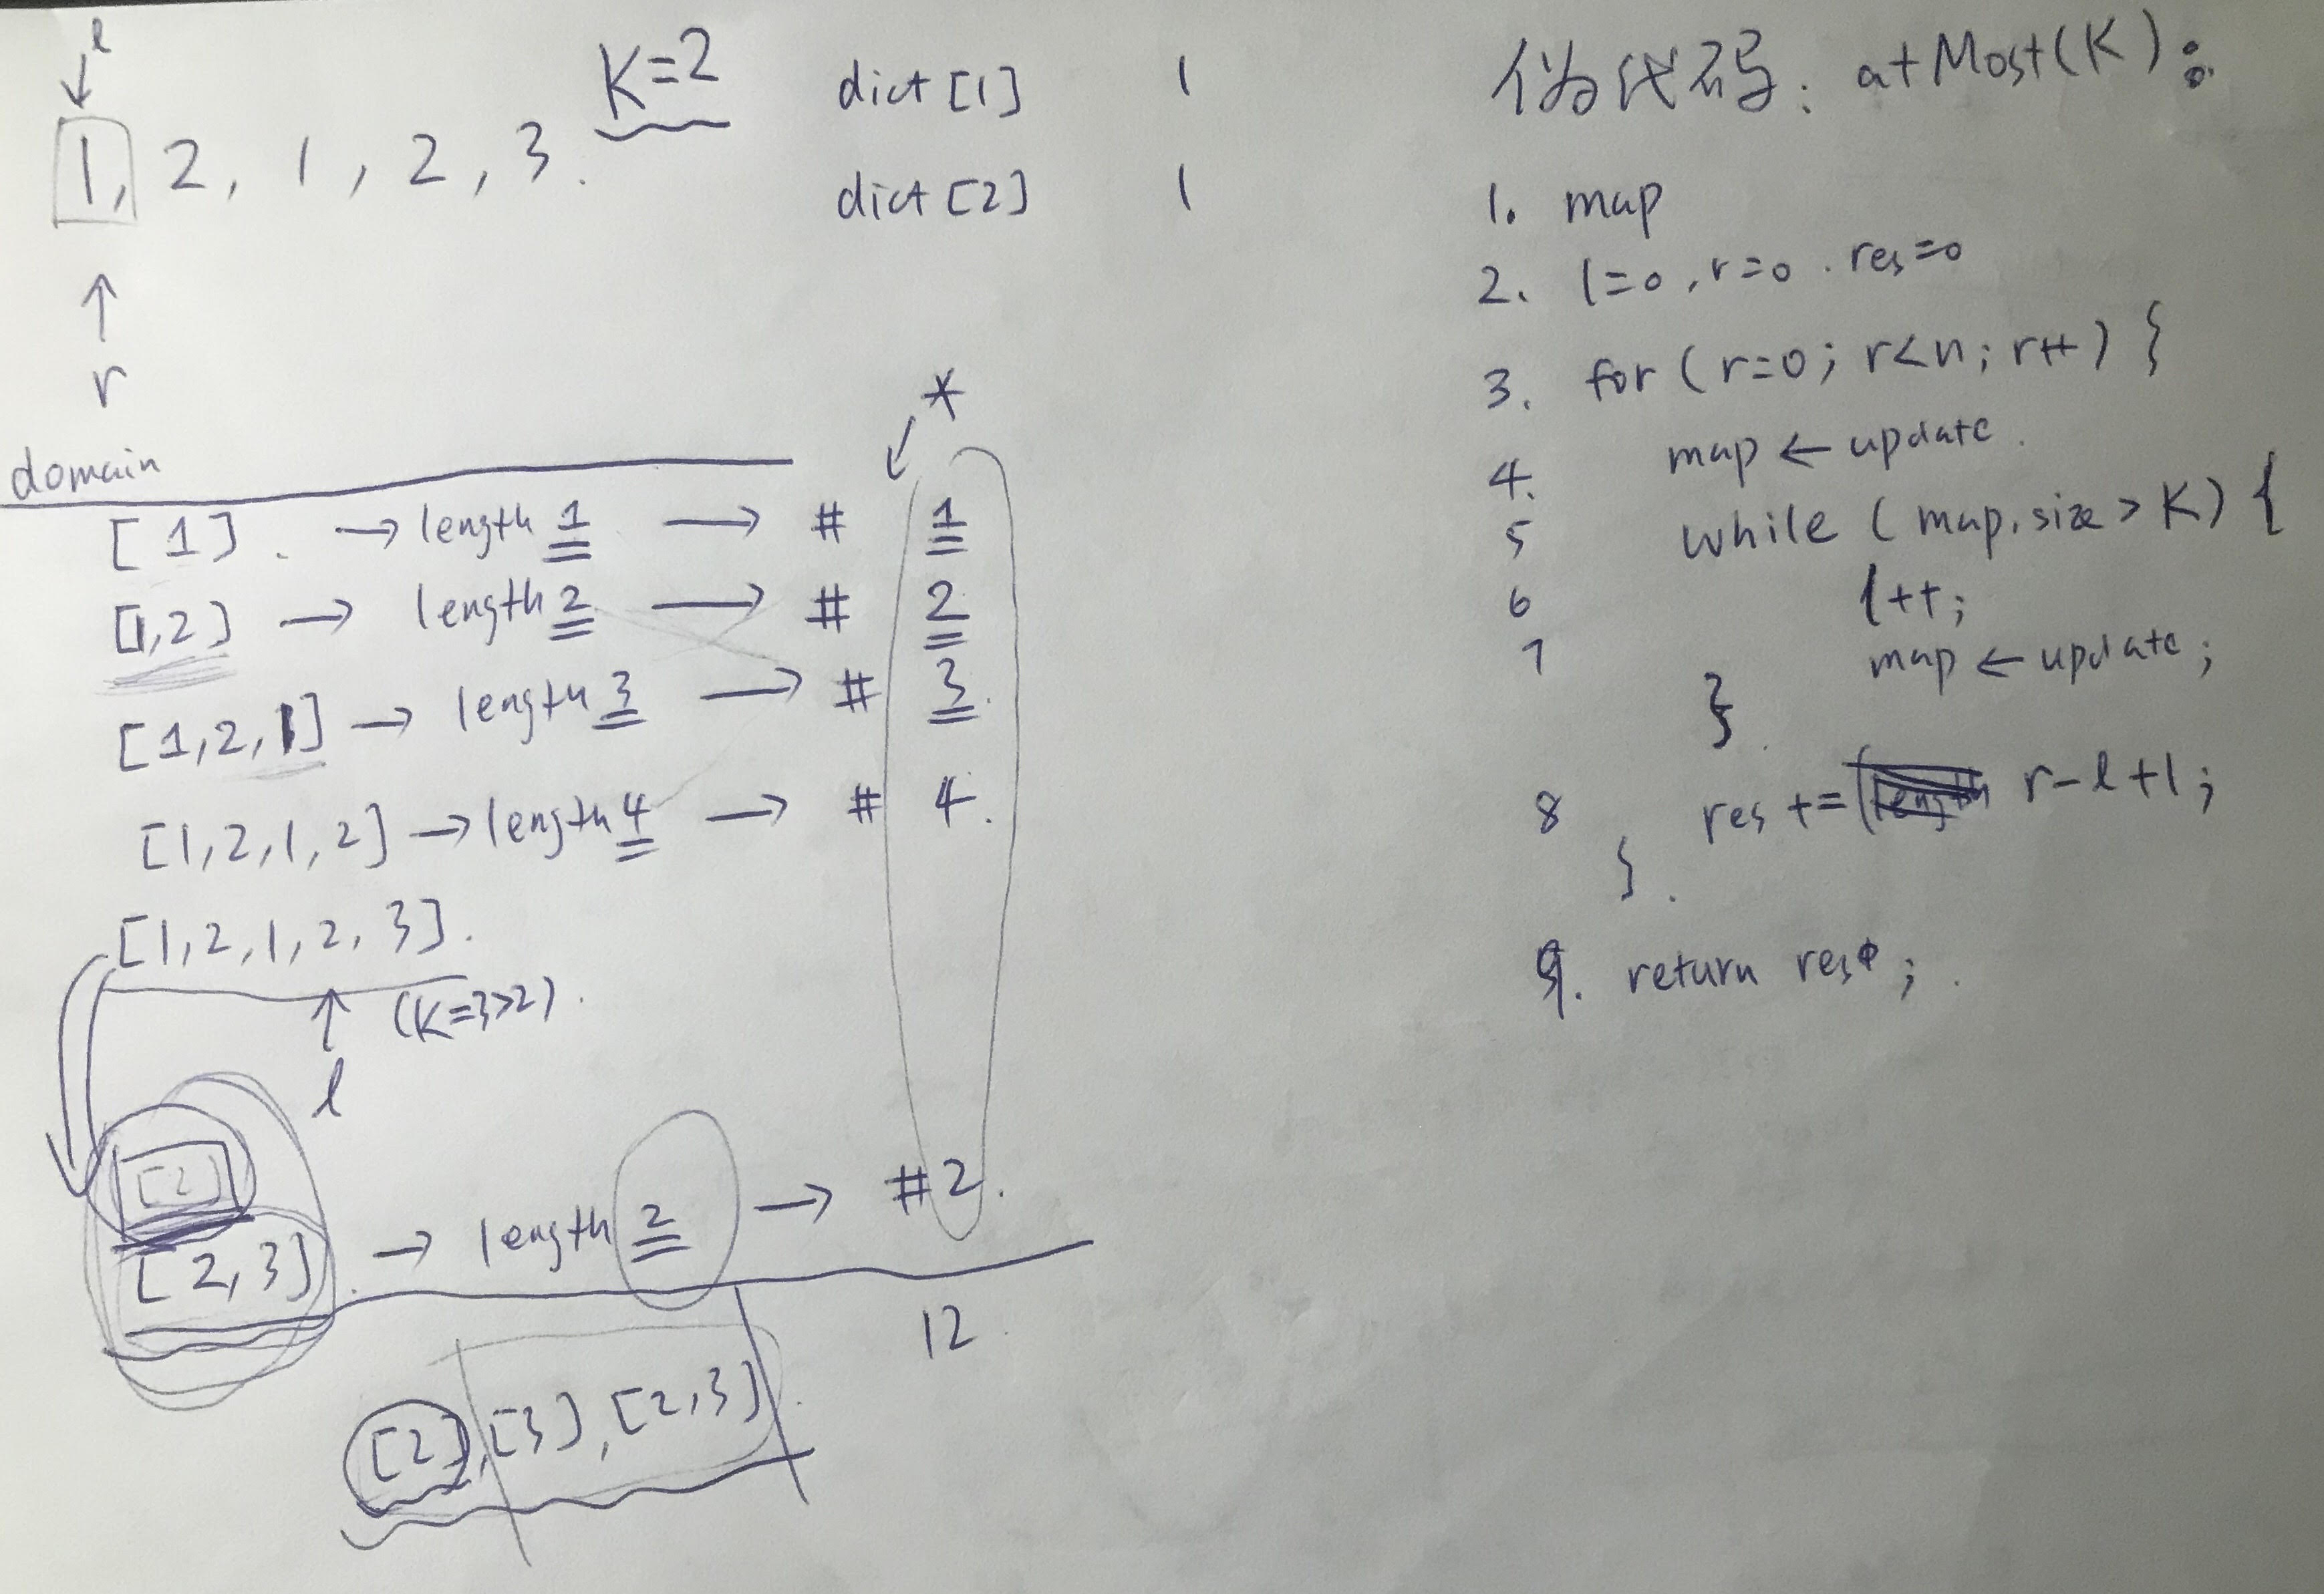 l
1, 2, 1, 2, 3.
K=2
r
dict [1] 1
dict [2] 1
domain
*
[1]. → length 1 → # 1
[1,2] → length 2 → # 2
[1,2,1] → length 3 → # 3.
[1,2,1,2] → length 4 → # 4.
[1,2,1,2,3].
(K=3>2).
l
[2]
[2,3]. → length 2 → #2.
12
[2],[3],[2,3].
伪代码: atMost(K):
1. map
2. l=0, r=0. res=0
3. for (r=0; r<n; r++) {
4. map ← update.
5 while (map.size > K) {
6 l++;
7 map ← update;
}
8 res += r-l+1;
}.
9. return res;